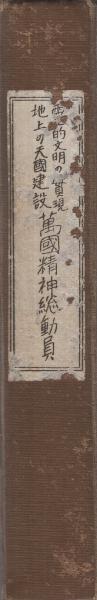 的文明の實現
地上の天國建設
萬國精神総動員